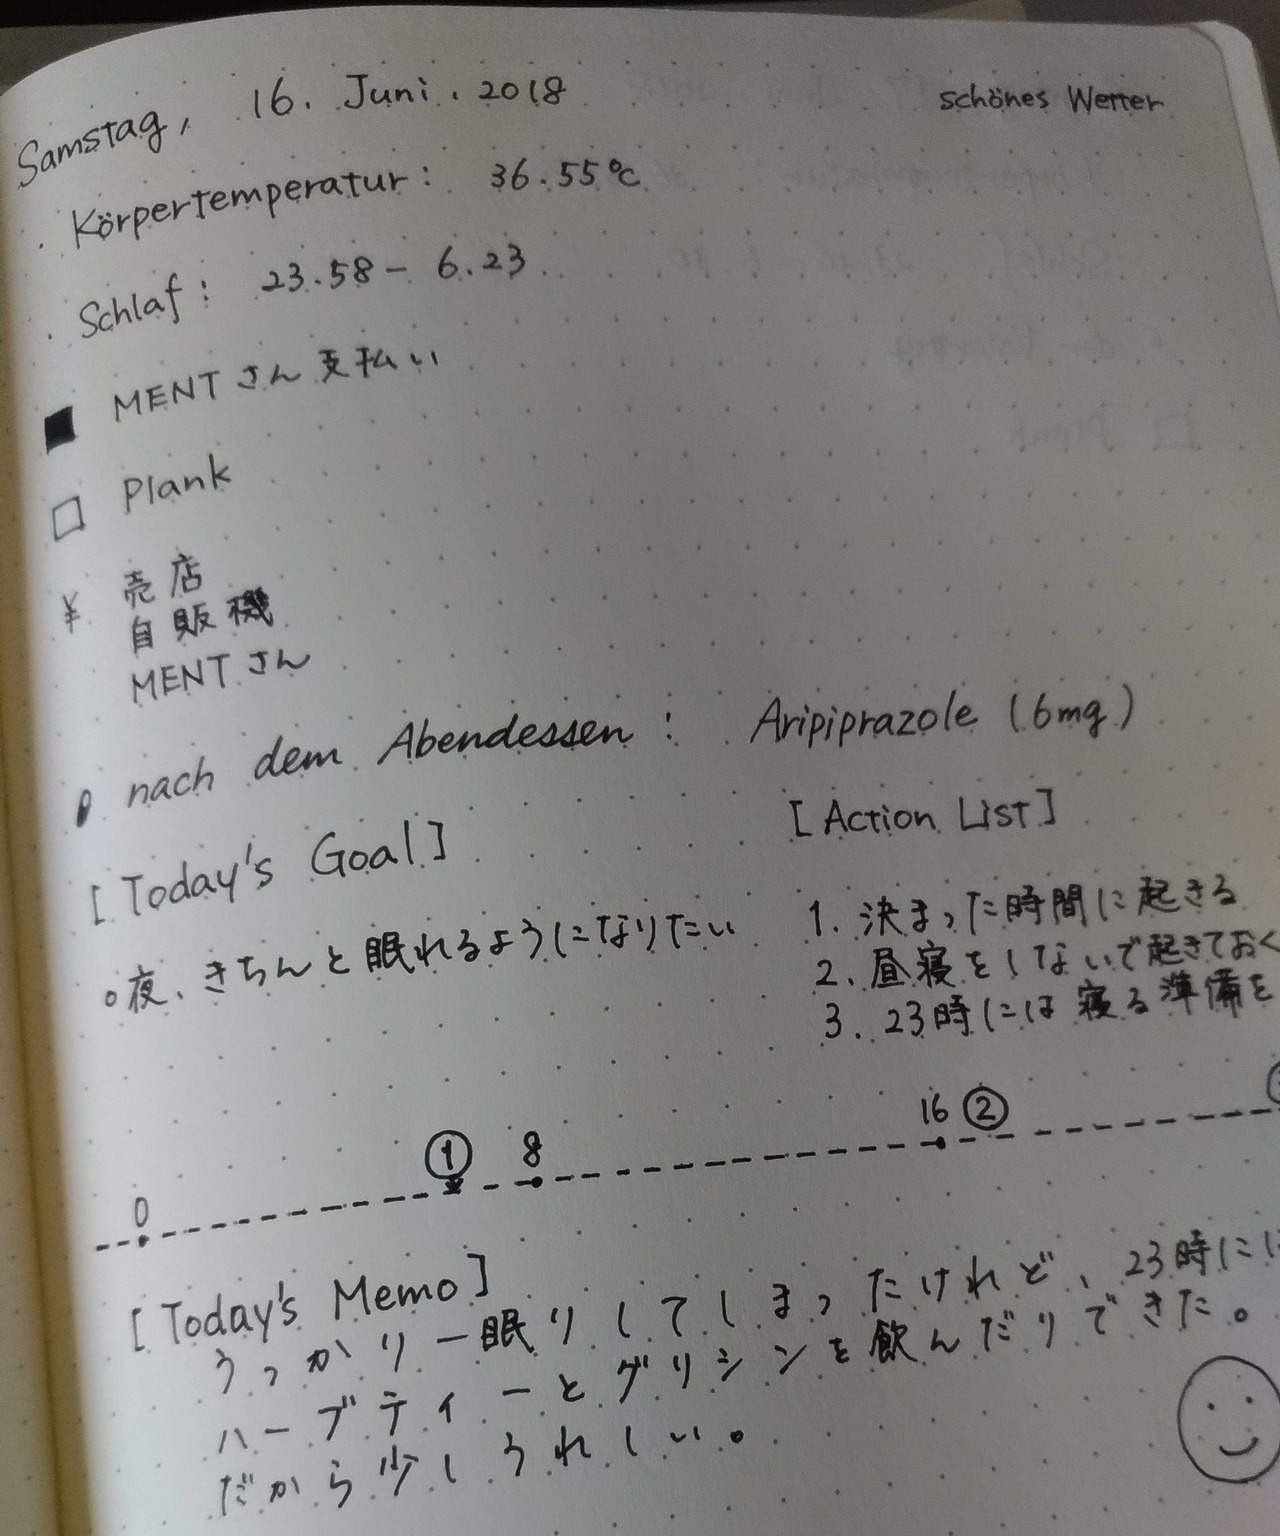 Samstag, 16. Juni. 2018 schönes Wetter
Körpertemperatur: 36.55℃
Schlaf: 23.58 - 6.23
MENTさん支払い
Plank
¥ 売店
自販機
MENTさん
nach dem Abendessen: Aripiprazole (6mg)
[Today's Goal]
○夜、きちんと眠れるようになりたい
[Action List]
1. 決まった時間に起きる
2. 昼寝をしないで起きておく
3. 23時には寝る準備を
0 ① 8 16 ②
[Today's Memo]
うっかり一眠りしてしまったけれど、23時には
ハーブティーとグリシンを飲んだりできた。
だから少しうれしい。